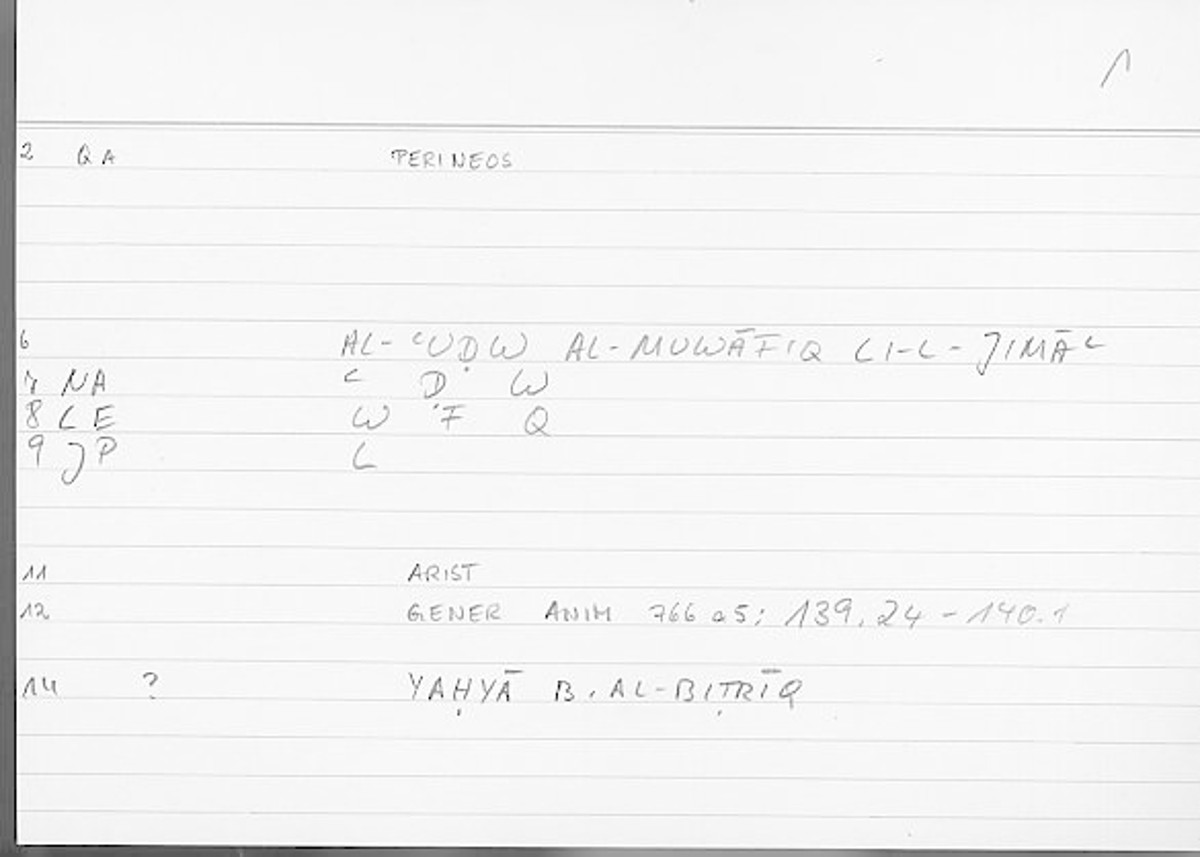 1
2 QA PERINEOS
6 AL-ʿUḌW AL-MUWĀFIQ LI-L-JIMĀʿ
7 NA ʿ Ḍ W
8 LE W F Q
9 JP L
11 ARIST
12 GENER ANIM 766 a5; 139,24-140.1
14 ? YAḤYĀ B. AL-BIṬRĪQ